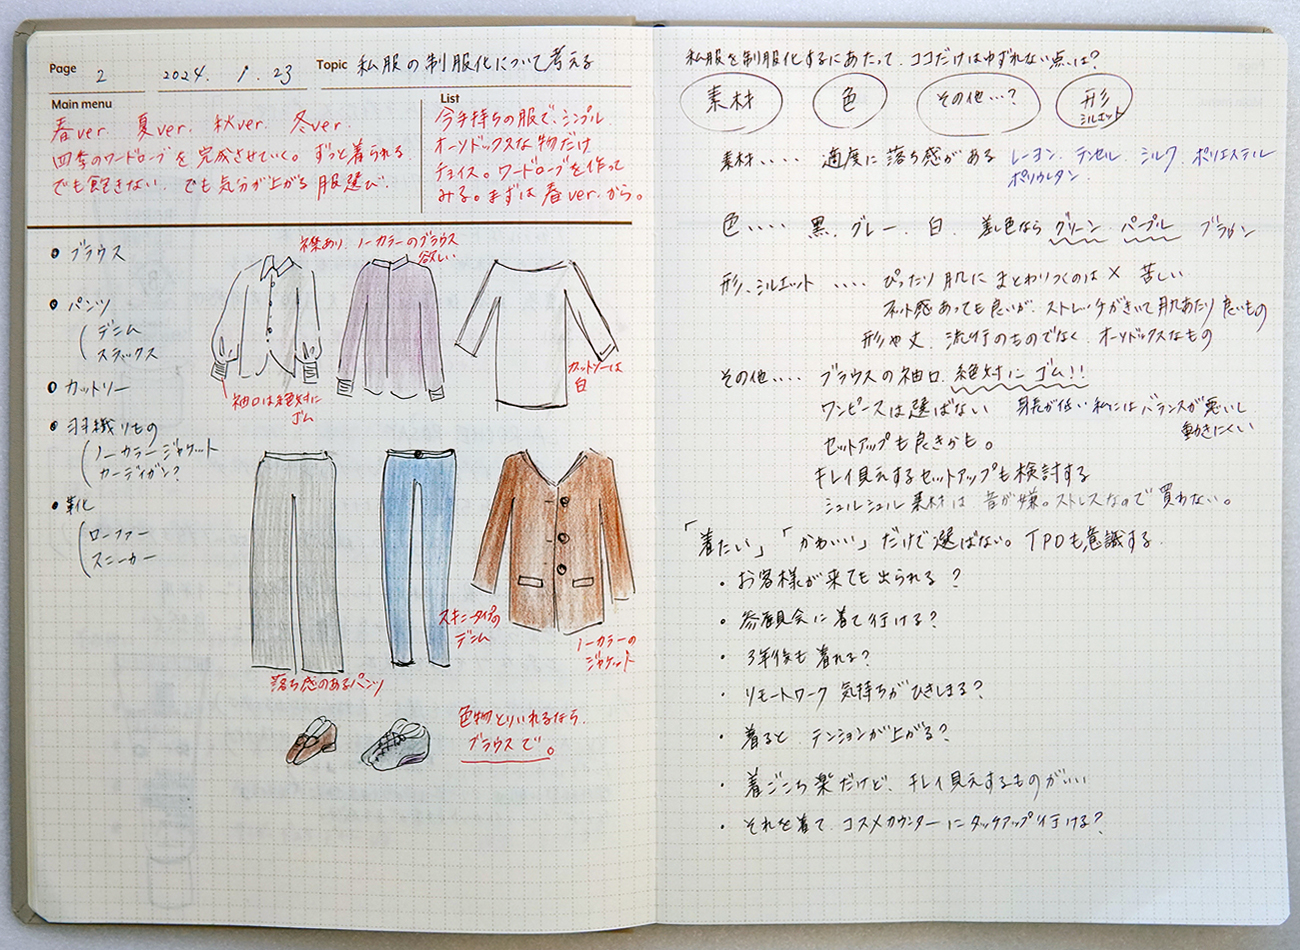 Page 2
2024. 1. 23
Topic 私服の制服化について考える
Main menu
春ver. 夏ver. 秋ver. 冬ver.
四季のワードローブを完成させていく。ずっと着られる
でも飽きない。でも気分が上がる服選び。
List
今手持ちの服で、シンプル
オーソドックスな物だけ
チョイス。ワードローブを作って
みる。まずは春ver.から。
・ブラウス
・パンツ
デニム
スラックス
・カットソー
・羽織りもの
ノーカラージャケット
カーディガン?
・靴
ローファー
スニーカー
襟あり、ノーカラーのブラウス
欲しい
袖口は絶対に
ゴム
カットソーは
白
落ち感のあるパンツ
スキニータイプの
デニム
ノーカラーの
ジャケット
色物とりいれるなら、
ブラウスで。
私服を制服化するにあたって、ココだけはゆずれない点は?
素材
色
その他…?
形
シルエット
素材‥‥‥ 適度に落ち感がある レーヨン、テンセル、シルク、ポリエステル
ポリウレタン
色‥‥ 黒、グレー、白、差し色なら グリーン、パープル ブラウン
形、シルエット ‥‥ ぴったり肌にまとわりつくのは× 苦しい
フィット感あっても良いが、ストレッチがきいて肌あたり良いもの
形や丈、流行のものでなく、オーソドックスなもの
その他‥‥ ブラウスの袖口、絶対にゴム!!
ワンピースは選ばない 身長が低い私にはバランスが悪いし
動きにくい
セットアップも良きかも。
キレイ見えするセットアップも検討する
シュルシュル素材は 音が嫌。ストレスなので買わない。
「着たい」「かわいい」だけで選ばない。TPOも意識する
・お客様が来ても出られる?
・参観会に着て行ける?
・3年後も着れる?
・リモートワーク 気持ちがひきしまる?
・着ると、テンションが上がる?
・着ごこち楽だけど、キレイ見えするものがいい
・それを着て、コスメカウンターにタッチアップ行ける?